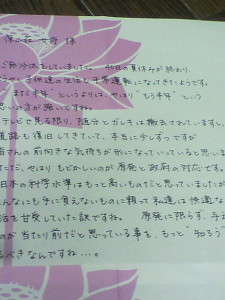 ご無沙汰をしていました。 40日の夏休みが終わり、
子供達の生活も平常運転になってきたようです。
"まだ半年"というよりは、やはり"もう半年"という
思いの方が強いですね。
テレビで見る限り、随分とガレキは撤去されていますし、
道路も復旧してきていて、本当に少しずつですが
皆さんの前向きな気持ちが形になっていっていると思いま
ただ、やはりもどかしいのが原発と政府の対応です。
日本の科学水準はもっと高いものだと思っていましたが
んなにも手に負えないものに頼って私達は快適な
活を甘受していた訳ですね。 原発に限らず、与え
のが当たり前だと思っている事を、もっと"知ろう"
るべきなんですね…。